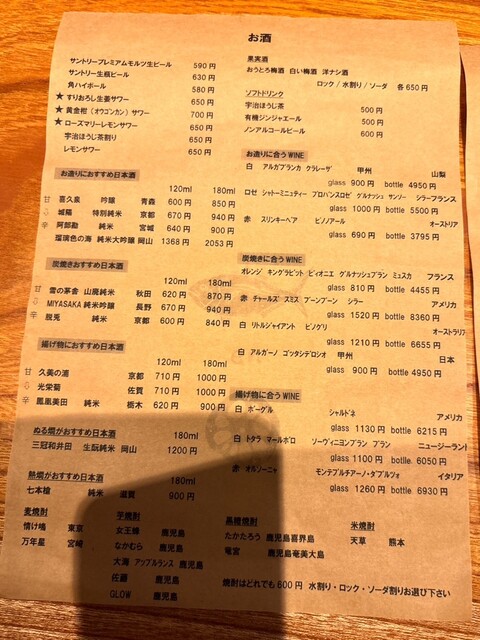 お酒
サントリープレミアムモルツ生ビール 590円
サントリー生瓶ビール 630円
角ハイボール 580円
★ すりおろし生姜サワー 650円
★ 黄金柑(オウゴンカン)サワー 700円
★ ローズマリーレモンサワー 650円
宇治ほうじ茶割り 650円
レモンサワー 650円
お造りにおすすめ日本酒
120ml 180ml
甘 喜久泉 吟醸 青森 600円 850円
⇩ 城陽 特別純米 京都 670円 940円
辛 阿部勘 純米 宮城 640円 900円
瑠璃色の海 純米大吟醸 岡山 1368円 2053円
炭焼きおすすめ日本酒
120ml 180ml
甘 雪の茅舎 山廃純米 秋田 620円 870円
⇩ MIYASAKA 純米吟醸 長野 670円 940円
辛 脱兎 純米 京都 600円 840円
揚げ物におすすめ日本酒
120ml 180ml
甘 久美の浦 京都 710円 1000円
⇩ 光栄菊 佐賀 710円 1000円
辛 鳳凰美田 純米 栃木 620円 900円
ぬる燗がおすすめ日本酒 180ml
三冠和井田 生酛純米 岡山 1200円
熱燗がおすすめ日本酒 180ml
七本槍 純米 滋賀 900円
果実酒
おうとろ梅酒 白い梅酒 洋ナシ酒
ロック / 水割り / ソーダ 各650円
ソフトドリンク
宇治ほうじ茶 500円
有機ジンジャエール 500円
ノンアルコールビール 600円
お造りに合うWINE
白 アルガブランカ クラレーザ 甲州 山梨
glass 900円 bottle 4950円
ロゼ シャトーミニュティー プロバンスロゼ グルナッシュ サンソー シラー フランス
glass 1000円 bottle 5500円
赤 スリンキーヘア ピノノアール オーストリア
glass 690円 bottle 3795円
炭焼きに合うWINE
オレンジ キングラビット ビィオニエ グルナッシュブラン ミュスカ フランス
glass 810円 bottle 4455円
赤 チャールズ スミス ブーンブーン シラー アメリカ
glass 1520円 bottle 8360円
白 リトルジャイアント ピノグリ オーストラリア
glass 1210円 bottle 6655円
白 アルガーノ ゴッタシデロシオ 甲州 日本
glass 900円 bottle 4950円
揚げ物に合うWINE
白 ボーグル シャルドネ アメリカ
glass 1130円 bottle 6215円
白 トタラ マールボロ ソーヴィニヨンブラン ブラン ニュージーランド
glass 1100円 bottle 6050円
赤 オルソーニャ モンテプルチアーノ・ダブルツォ イタリア
glass 1260円 bottle 6930円
麦焼酎
情け嶋 東京
万年星 宮崎
芋焼酎
女王蜂 鹿児島
なかむら 鹿児島
大海 アップルランス 鹿児島
佐藤 鹿児島
GLOW 鹿児島
黒糖焼酎
たかたろう 鹿児島喜界島
竜宮 鹿児島奄美大島
米焼酎
天草 熊本
焼酎はどれでも600円 水割り・ロック・ソーダ割りお選び下さい